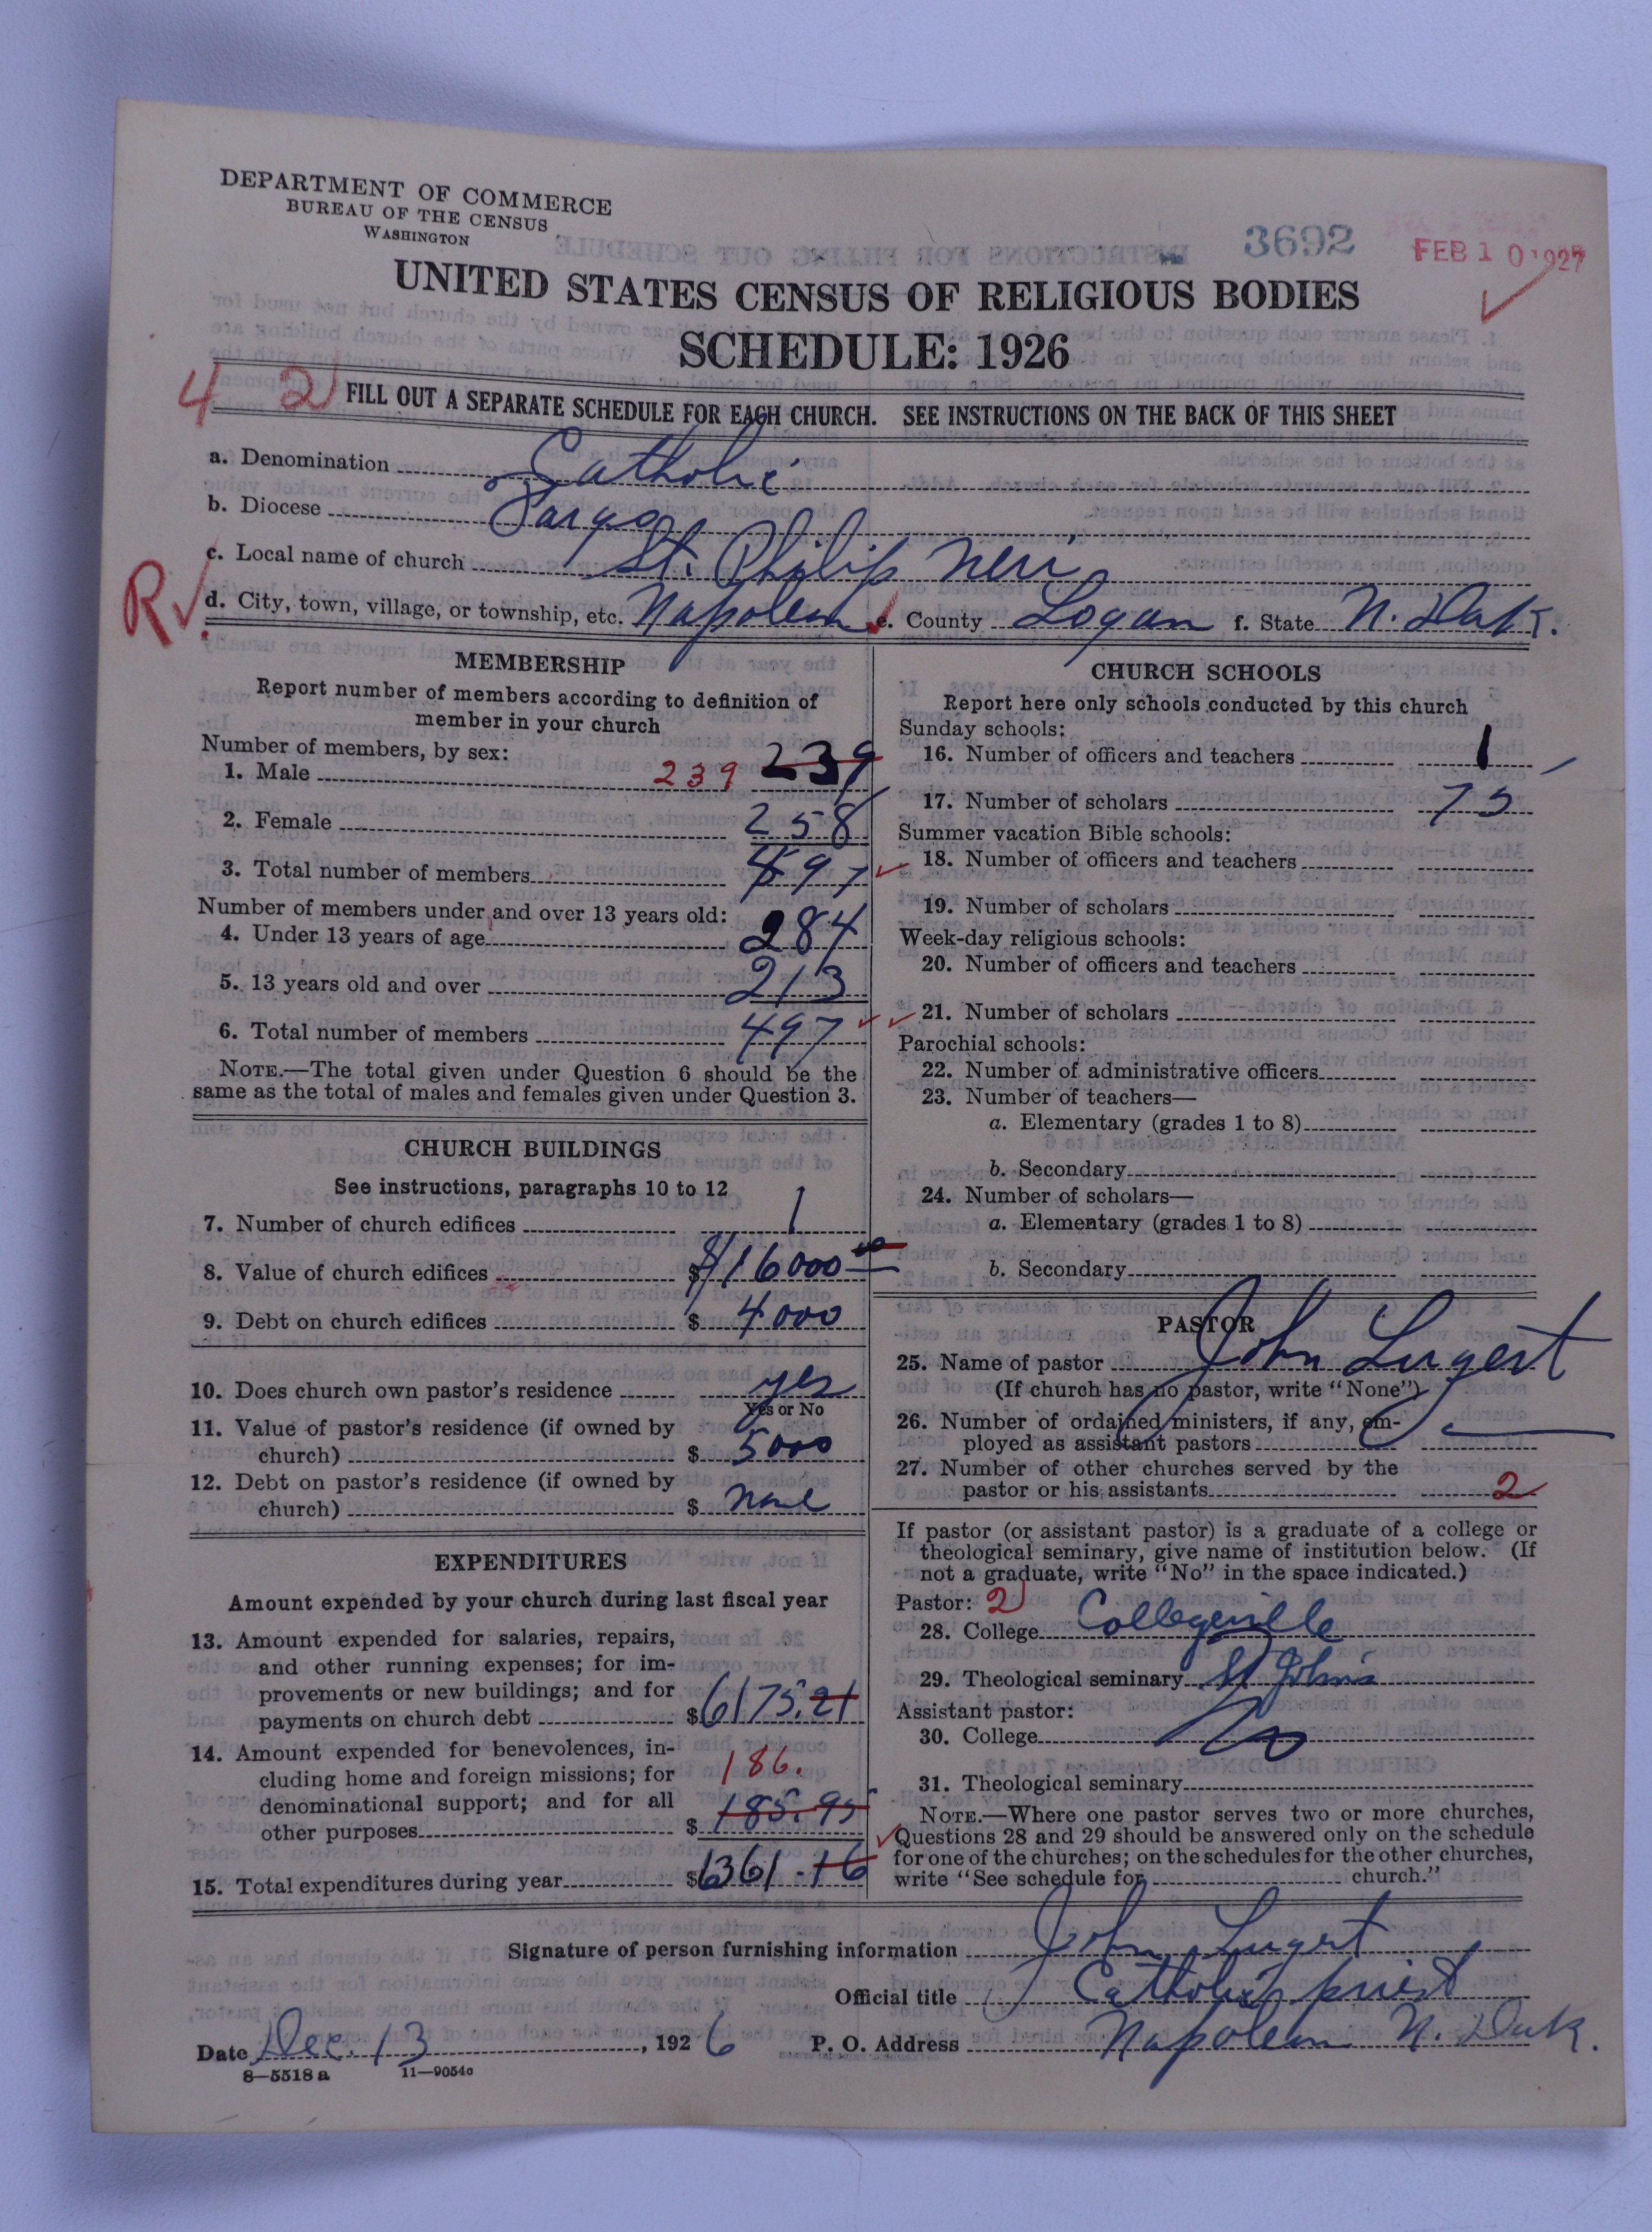 DEPARTMENT OF COMMERCE
BUREAU OF THE CENSUS
WASHINGTON
3692
FEB 10 1927
UNITED STATES CENSUS OF RELIGIOUS BODIES
SCHEDULE: 1926
4 2
FILL OUT A SEPARATE SCHEDULE FOR EACH CHURCH. SEE INSTRUCTIONS ON THE BACK OF THIS SHEET
a. Denomination Catholic
b. Diocese Fargo
c. Local name of church St. Philip Neri
R
d. City, town, village, or township, etc. Napoleon e. County Logan f. State N. Dak.
MEMBERSHIP
Report number of members according to definition of
member in your church
Number of members, by sex:
1. Male 239 239
2. Female 258
3. Total number of members 497
Number of members under and over 13 years old:
4. Under 13 years of age 284
5. 13 years old and over 213
6. Total number of members 497
NOTE.—The total given under Question 6 should be the
same as the total of males and females given under Question 3.
CHURCH BUILDINGS
See instructions, paragraphs 10 to 12
7. Number of church edifices 1
8. Value of church edifices $ $16000 00
9. Debt on church edifices $ 4000
10. Does church own pastor's residence yes
Yes or No
11. Value of pastor's residence (if owned by
church) $ 5000
12. Debt on pastor's residence (if owned by
church) $ none
EXPENDITURES
Amount expended by your church during last fiscal year
13. Amount expended for salaries, repairs,
and other running expenses; for im-
provements or new buildings; and for
payments on church debt $ 6175.21
14. Amount expended for benevolences, in-
cluding home and foreign missions; for 186.
denominational support; and for all
other purposes $ 185.95
15. Total expenditures during year $ 6361.16
CHURCH SCHOOLS
Report here only schools conducted by this church
Sunday schools:
16. Number of officers and teachers 1
17. Number of scholars 75
Summer vacation Bible schools:
18. Number of officers and teachers
19. Number of scholars
Week-day religious schools:
20. Number of officers and teachers
21. Number of scholars
Parochial schools:
22. Number of administrative officers
23. Number of teachers—
a. Elementary (grades 1 to 8)
b. Secondary
24. Number of scholars—
a. Elementary (grades 1 to 8)
b. Secondary
PASTOR
25. Name of pastor John Lugert
(If church has no pastor, write "None")
26. Number of ordained ministers, if any, em-
ployed as assistant pastors
27. Number of other churches served by the
pastor or his assistants 2
If pastor (or assistant pastor) is a graduate of a college or
theological seminary, give name of institution below. (If
not a graduate, write "No" in the space indicated.)
Pastor: 2
28. College Collegeville
29. Theological seminary St Johns
Assistant pastor:
30. College
31. Theological seminary
NOTE.—Where one pastor serves two or more churches,
Questions 28 and 29 should be answered only on the schedule
for one of the churches; on the schedules for the other churches,
write "See schedule for church."
Signature of person furnishing information John Lugert
Official title Catholic priest
Date Dec. 13, 1926 P. O. Address Napoleon N. Dak.
8—5518a 11—9054c